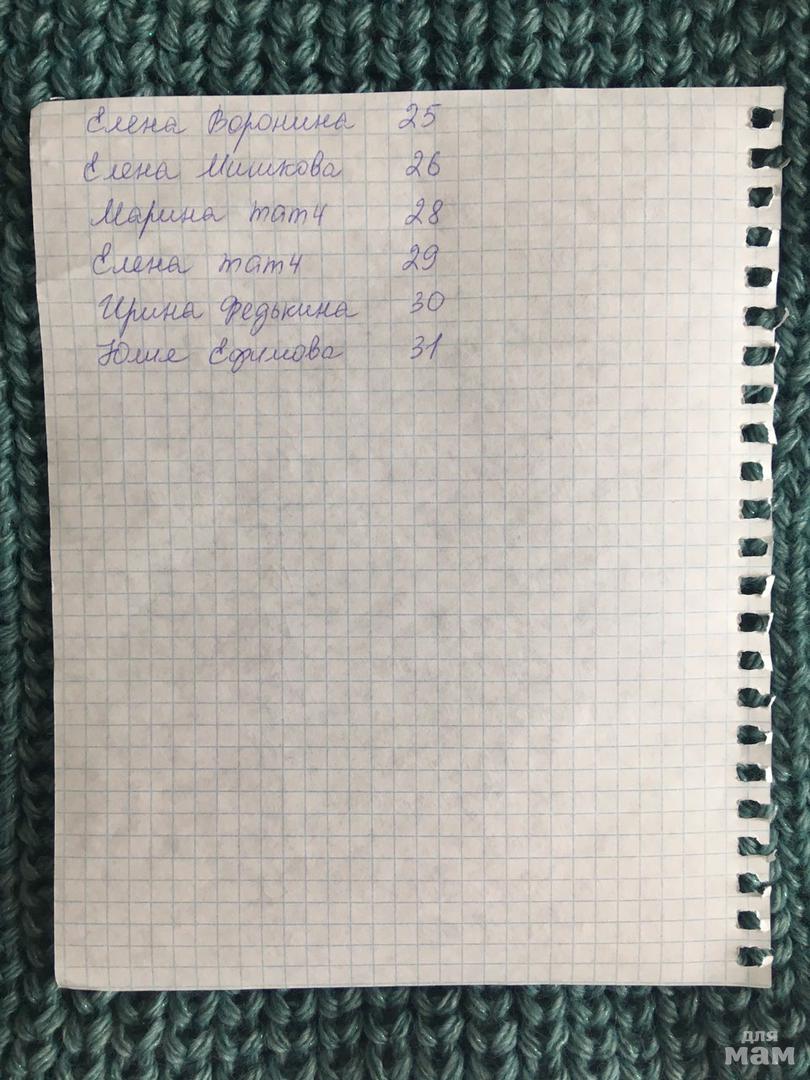 Елена Воронина 25
Елена Мишкова 26
Марина тат4 28
Елена тат4 29
Ирина Федькина 30
Юлия Ефимова 31
для
мам